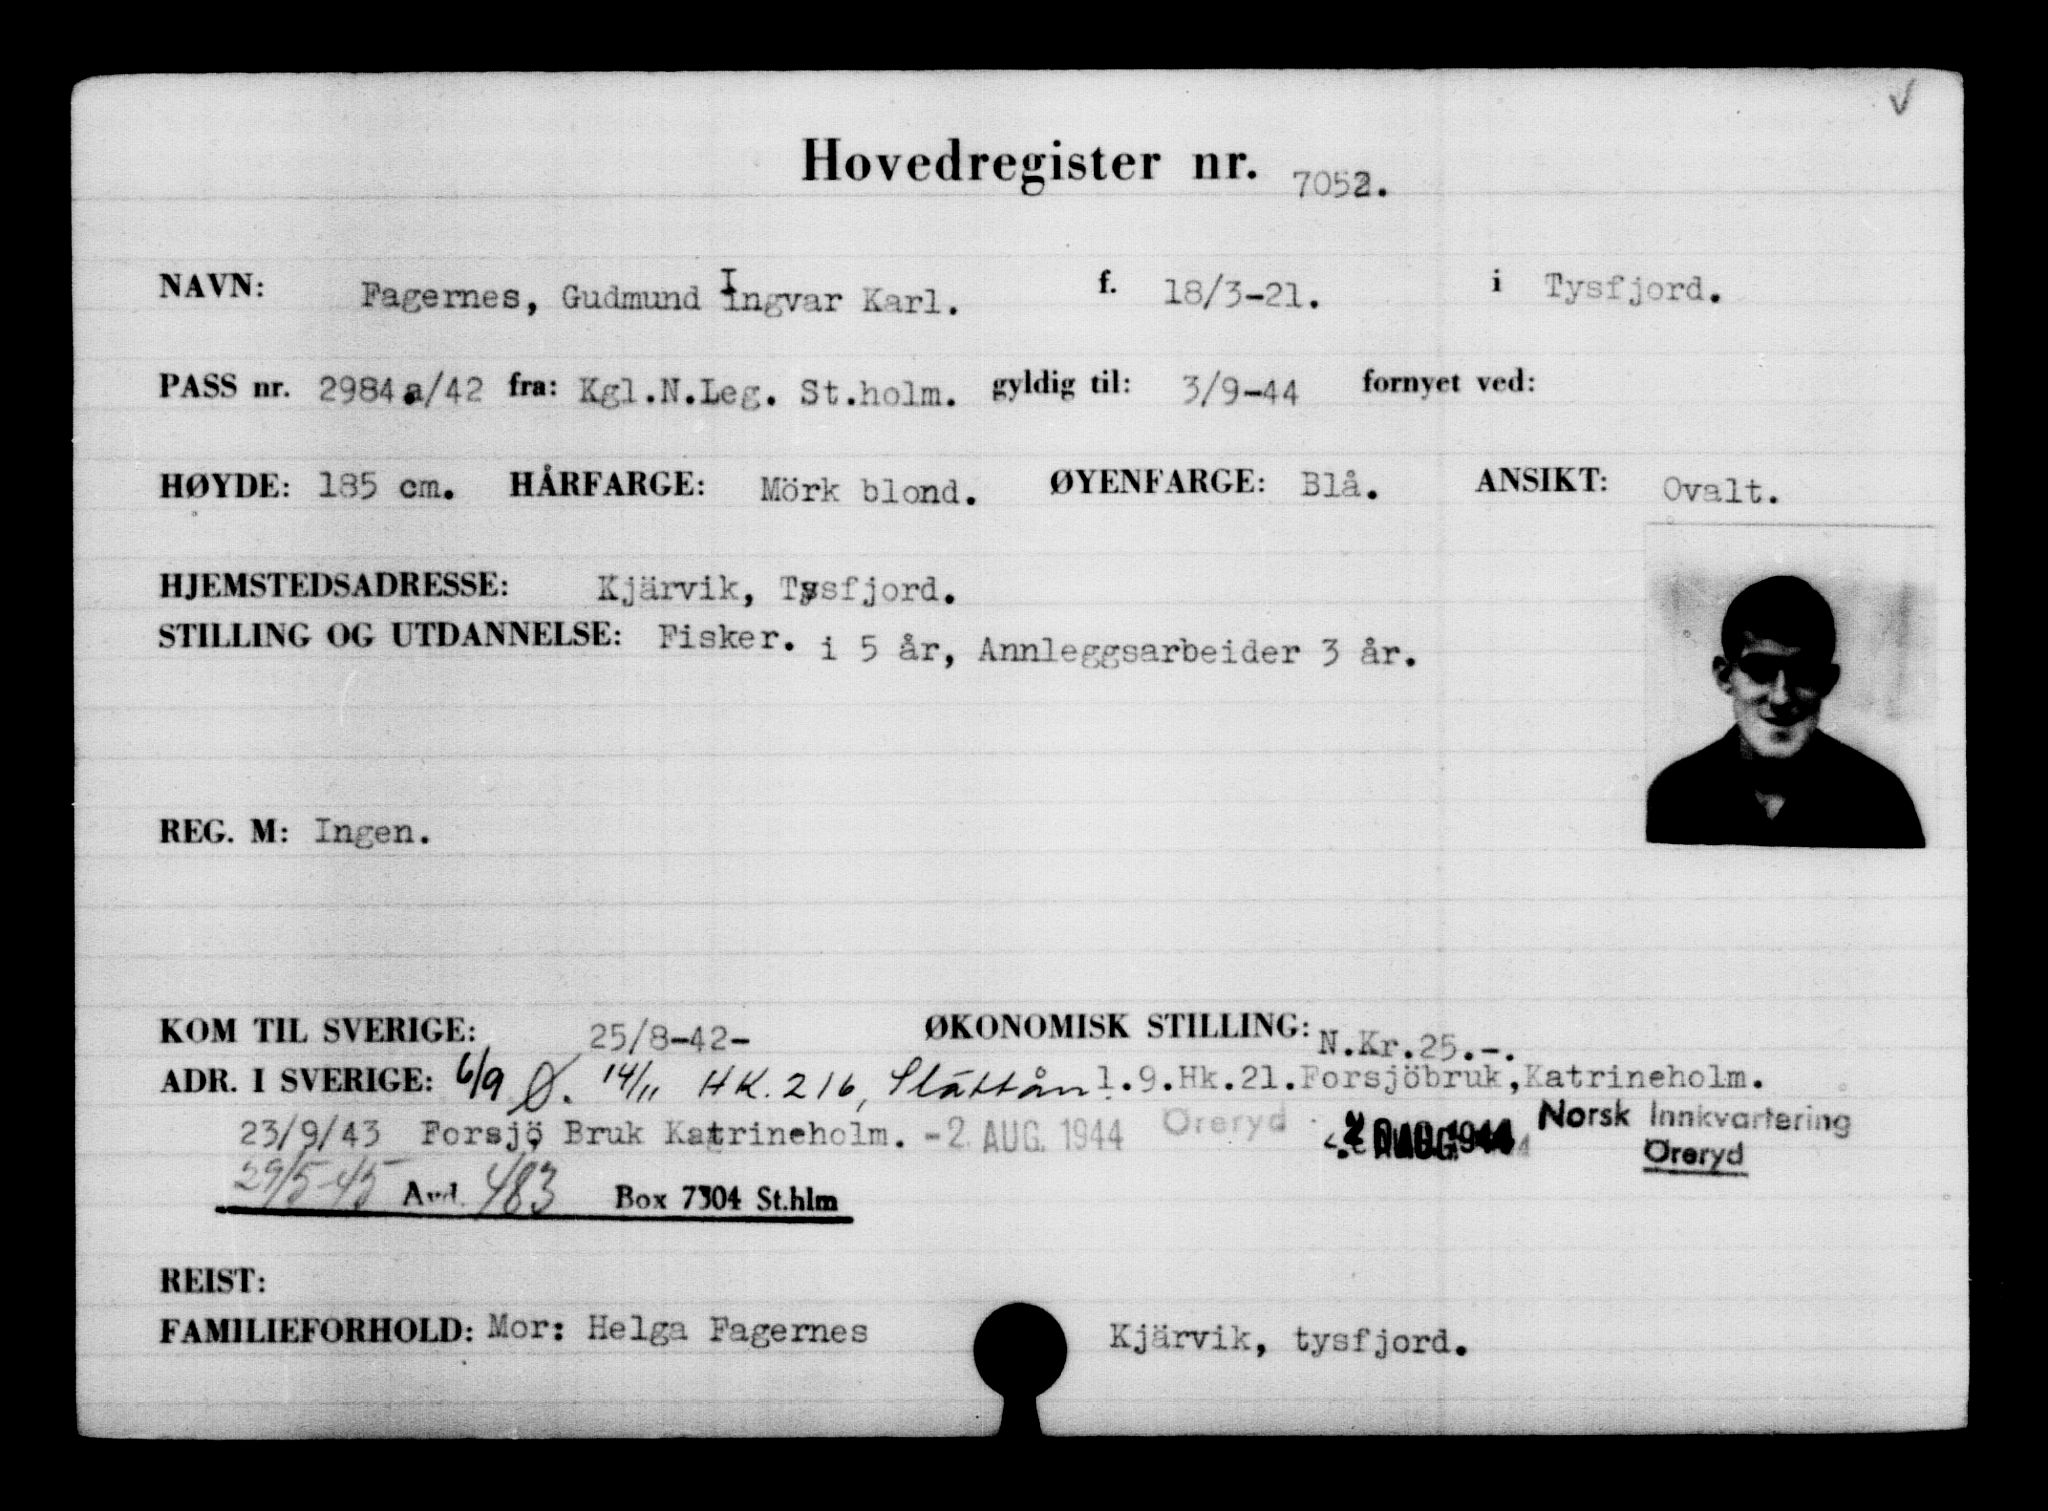 Hovedregister nr. 7052.
NAVN: Fagernes, Gudmund Ingvar Karl. f. 18/3-21. i Tysfjord.
PASS nr. 2984 a/42 fra: Kgl.N.Leg. St.holm. gyldig til: 3/9-44 fornyet ved:
HØYDE: 185 cm. HÅRFARGE: Mörk blond. ØYENFARGE: Blå. ANSIKT: Ovalt.
HJEMSTEDSADRESSE: Kjärvik, Tysfjord.
STILLING OG UTDANNELSE: Fisker. i 5 år, Annleggsarbeider 3 år.
REG. M: Ingen.
KOM TIL SVERIGE: 25/8-42- ØKONOMISK STILLING: N.Kr.25.-.
ADR. I SVERIGE: 6/9 Ø. 14/11 HK. 216, Slättån 1.9.Hk.21.Forsjöbruk,Katrineholm.
23/9/43 Forsjö Bruk Katrineholm. -2. AUG. 1944 Öreryd Norsk Innkvartering
Öreryd
29/5-45 Avd. 483 Box 7304 St.hlm
REIST:
FAMILIEFORHOLD: Mor: Helga Fagernes Kjärvik, tysfjord.